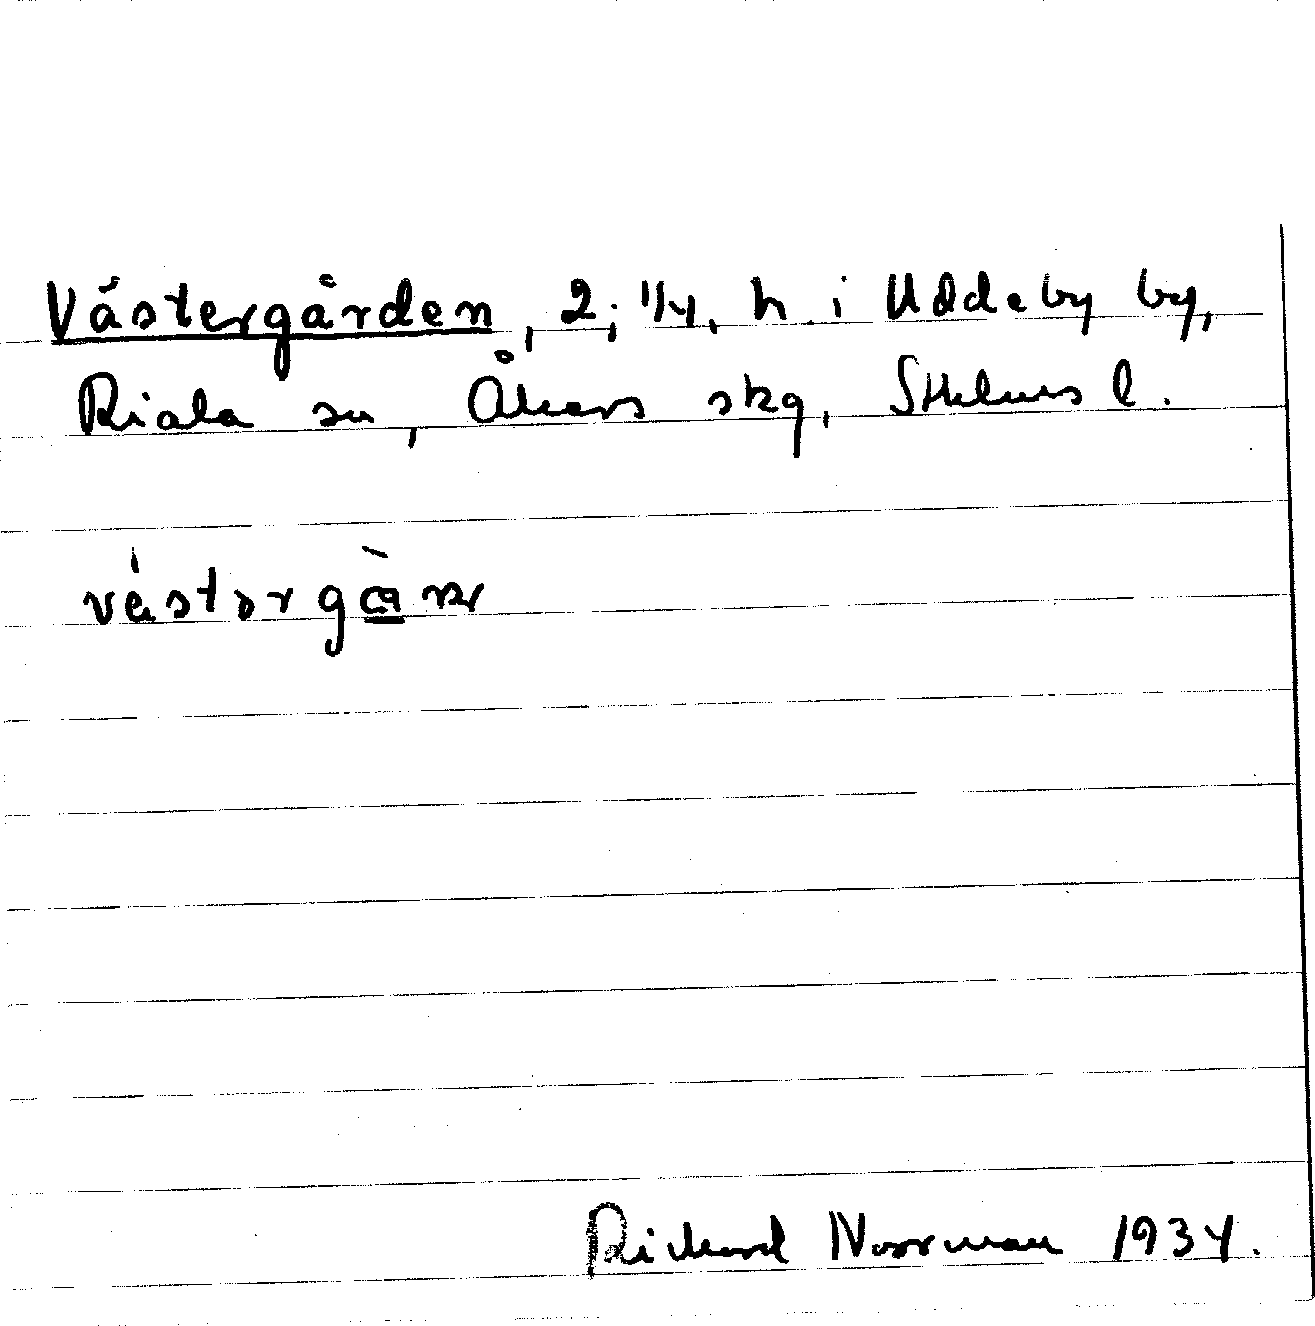 Västergården, 2; 1/4, h. i Uddeby by,
Riala sn, Åkers skg, Sthlms l.
Richard Norrman 1934.